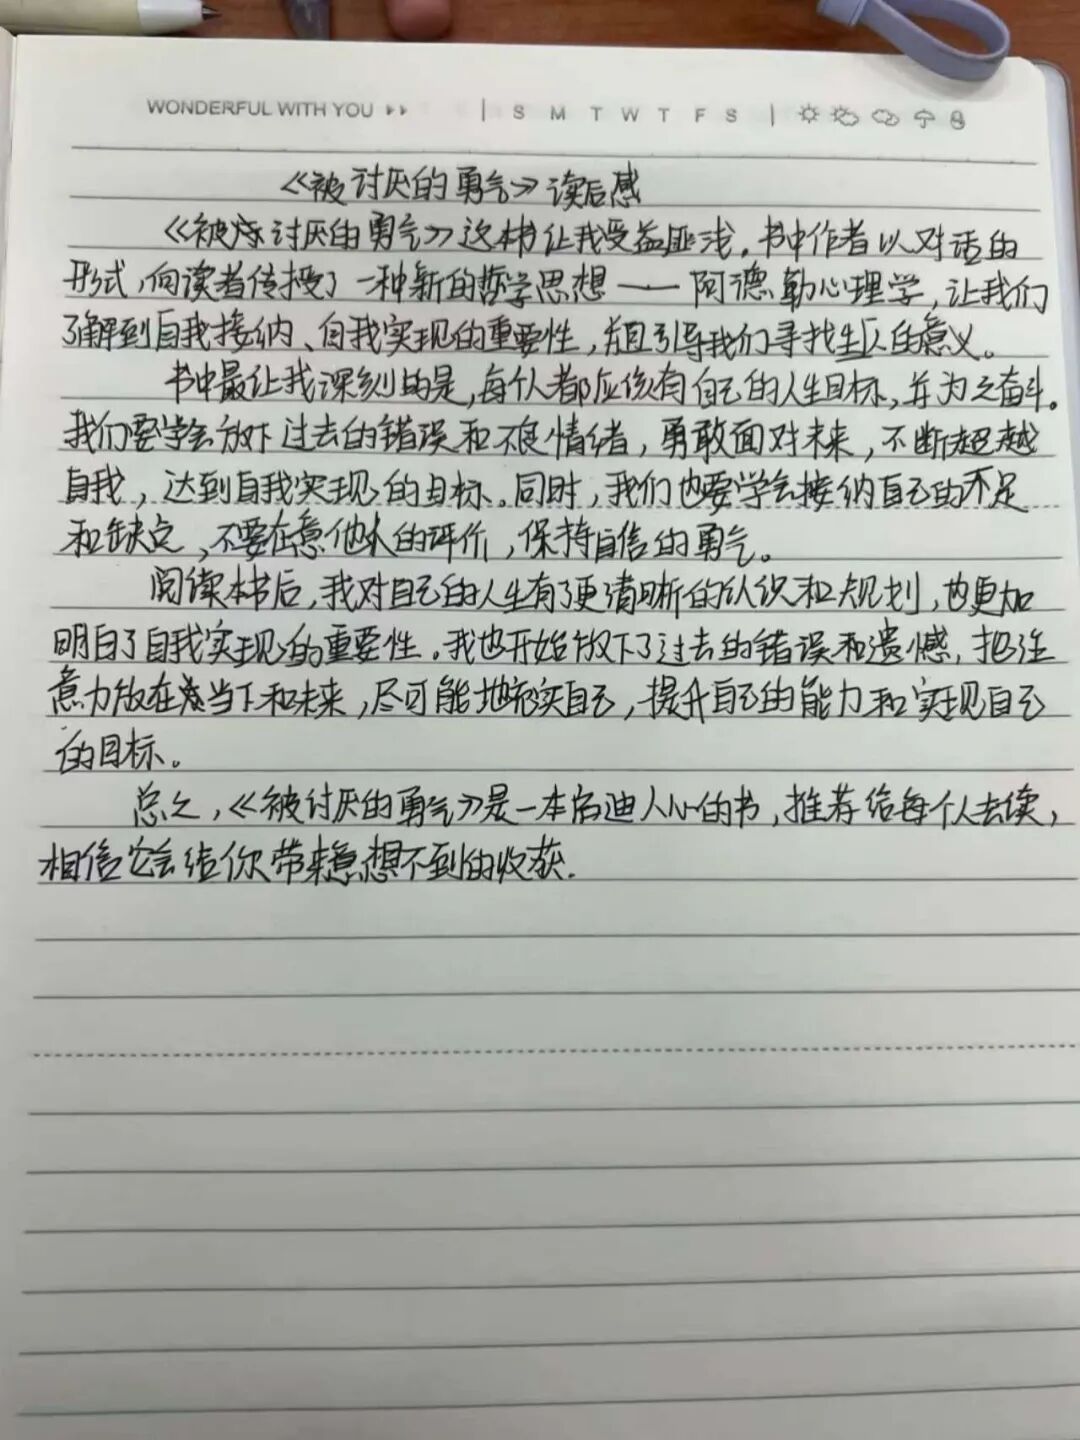 WONDERFUL WITH YOU S M T W T F S
《被讨厌的勇气》读后感
《被讨厌的勇气》这本书让我受益匪浅。书中作者以对话的
形式,向读者传授了一种新的哲学思想——阿德勒心理学,让我们
了解到自我接纳、自我实现的重要性,并且引导我们寻找生人的意义。
书中最让我深刻的是,每个人都应该有自己的人生目标,并为之奋斗。
我们要学会放下过去的错误和不良情绪,勇敢面对未来,不断超越
自我,达到自我实现的目标。同时,我们也要学会接纳自己的不足
和缺点,不要在意他人的评价,保持自信的勇气。
阅读本书后,我对自己的人生有了更清晰的认识和规划,也更加
明白了自我实现的重要性。我也开始放下了过去的错误和遗憾,把注
意力放在当下和未来,尽可能地充实自己,提升自己的能力和实现自己
的目标。
总之,《被讨厌的勇气》是一本启迪人心的书,推荐给每个人去读,
相信它会给你带来意想不到的收获.